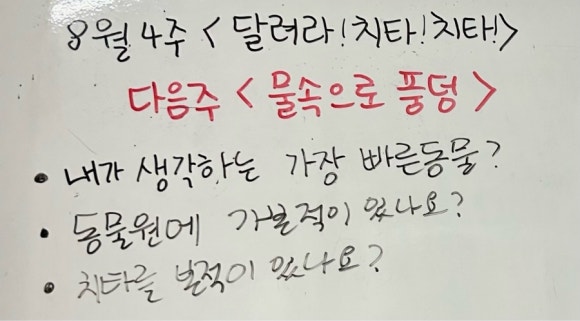 8월 4주 < 달려라! 치타! 치타!>
다음주 < 물속으로 풍덩 >
• 내가 생각하는 가장 빠른동물?
• 동물원에 가본적이 있나요?
• 치타를 본적이 있나요?